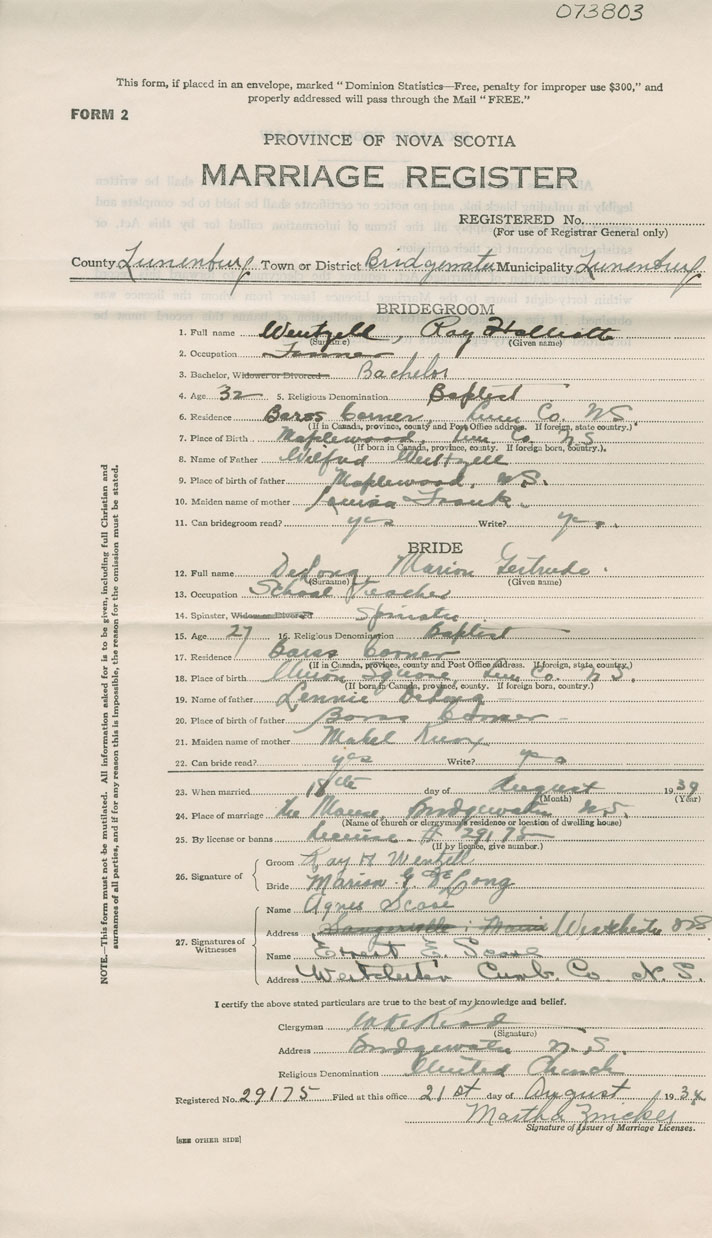 073803
This form, if placed in an envelope, marked "Dominion Statistics—Free, penalty for improper use $300," and
properly addressed will pass through the Mail "FREE."
FORM 2
PROVINCE OF NOVA SCOTIA
MARRIAGE REGISTER
REGISTERED No.
(For use of Registrar General only)
County Lunenburg Town or District Bridgewater Municipality Lunenburg
BRIDEGROOM
1. Full name Wentzell, Ray
(Surname) (Given name)
2. Occupation Farmer
3. Bachelor, Widower or Divorced Bachelor
4. Age 32 5. Religious Denomination Baptist
6. Residence Barss Corner, Lun Co. NS
(If in Canada, province, county and Post Office address. If foreign, state country.)
7. Place of Birth Maplewood, Lun. Co. N.S.
(If born in Canada, province, county. If foreign born, country.)
8. Name of Father Wilfred Wentzell
9. Place of birth of father Maplewood, N.S.
10. Maiden name of mother Louisa Frank
11. Can bridegroom read? yes Write? yes
BRIDE
12. Full name DeLong Marion Gertrude
(Surname) (Given name)
13. Occupation School Teacher
14. Spinster, Widow or Divorced Spinster
15. Age 27 16. Religious Denomination Baptist
17. Residence Barss Corner
(If in Canada, province, county and Post Office address. If foreign, state country.)
18. Place of birth Union Square, Lun Co. N.S.
(If born in Canada, province, county. If foreign born, country.)
19. Name of father Lennie DeLong
20. Place of birth of father Barss Corner
21. Maiden name of mother Mabel Knox
22. Can bride read? yes Write? yes
23. When married 18th day of August 1939
(Month) (Year)
24. Place of marriage the Manse, Bridgewater N.S.
(Name of church or clergyman's residence or location of dwelling house)
25. By license or banns license # 29175
(If by licence, give number.)
26. Signature of
Groom Ray H Wentzell
Bride Marion G. DeLong
27. Signatures of Witnesses
Name Agnes Scase
Address Westchester NS
Name Ernest E. Scase
Address Westchester Cumb. Co. N.S.
I certify the above stated particulars are true to the best of my knowledge and belief.
Clergyman
(Signature)
Address Bridgewater N.S.
Religious Denomination United Church
Registered No. 29175 Filed at this office 21st day of August 193
Martha Zwicker
Signature of Issuer of Marriage Licenses.
[SEE OTHER SIDE]
NOTE.—This form must not be mutilated. All information asked for is to be given, including full Christian and
surnames of all parties, and if for any reason this is impossible, the reason for the omission must be stated.